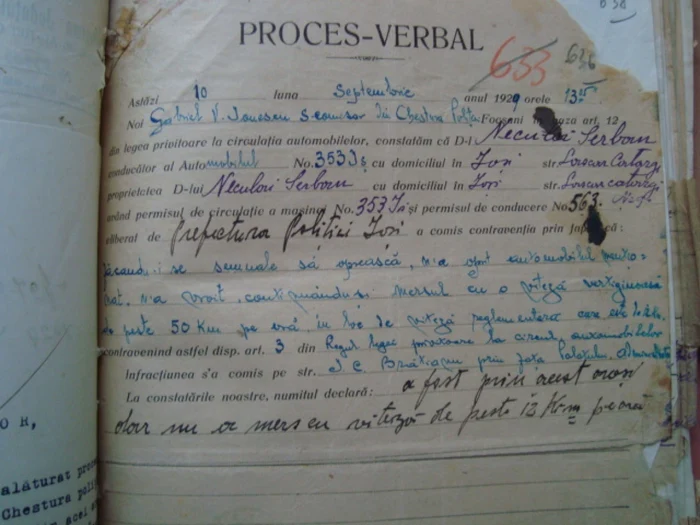 636
633 636
PROCES-VERBAL
Astăzi 10 luna Septembrie anul 1929 orele 13
Noi Gabriel V. Ionescu Scomisar din Chestura Poliției Focșani în baza art. 12
din legea privitoare la circulația automobilelor, constatăm că D-l Neculai Serban
conducător al Automobilul No. 353 Iș cu domiciliul în Iași str. Lascar Catargi
proprietatea D-lui Neculai Serban cu domiciliul în Iași str. Lascar Catargi
având permisul de circulație a mașinei No. 353 Iș și permisul de conducere No 563
eliberat de Prefectura Poliției Iași a comis contravenția prin faptul că:
făcându-i-se semnale să oprească, n'a oprit automobilul menționat,
n'a voit, continuându-și mersul cu o viteză vertiginoasă
de peste 50 Km pe oră în loc de viteză reglementară care este de
contravenind astfel disp. art. 3 din Regul. legei privitoare la circul. automobilelor
Infracțiunea s'a comis pe str. I. C. Brătianu prin fața
La constatările noastre, numitul declară: a fost prin acest oraș
dar nu a mers cu viteză de peste 13 Km pe oră
O H,
alăturat proces
Chestura poli
în acel